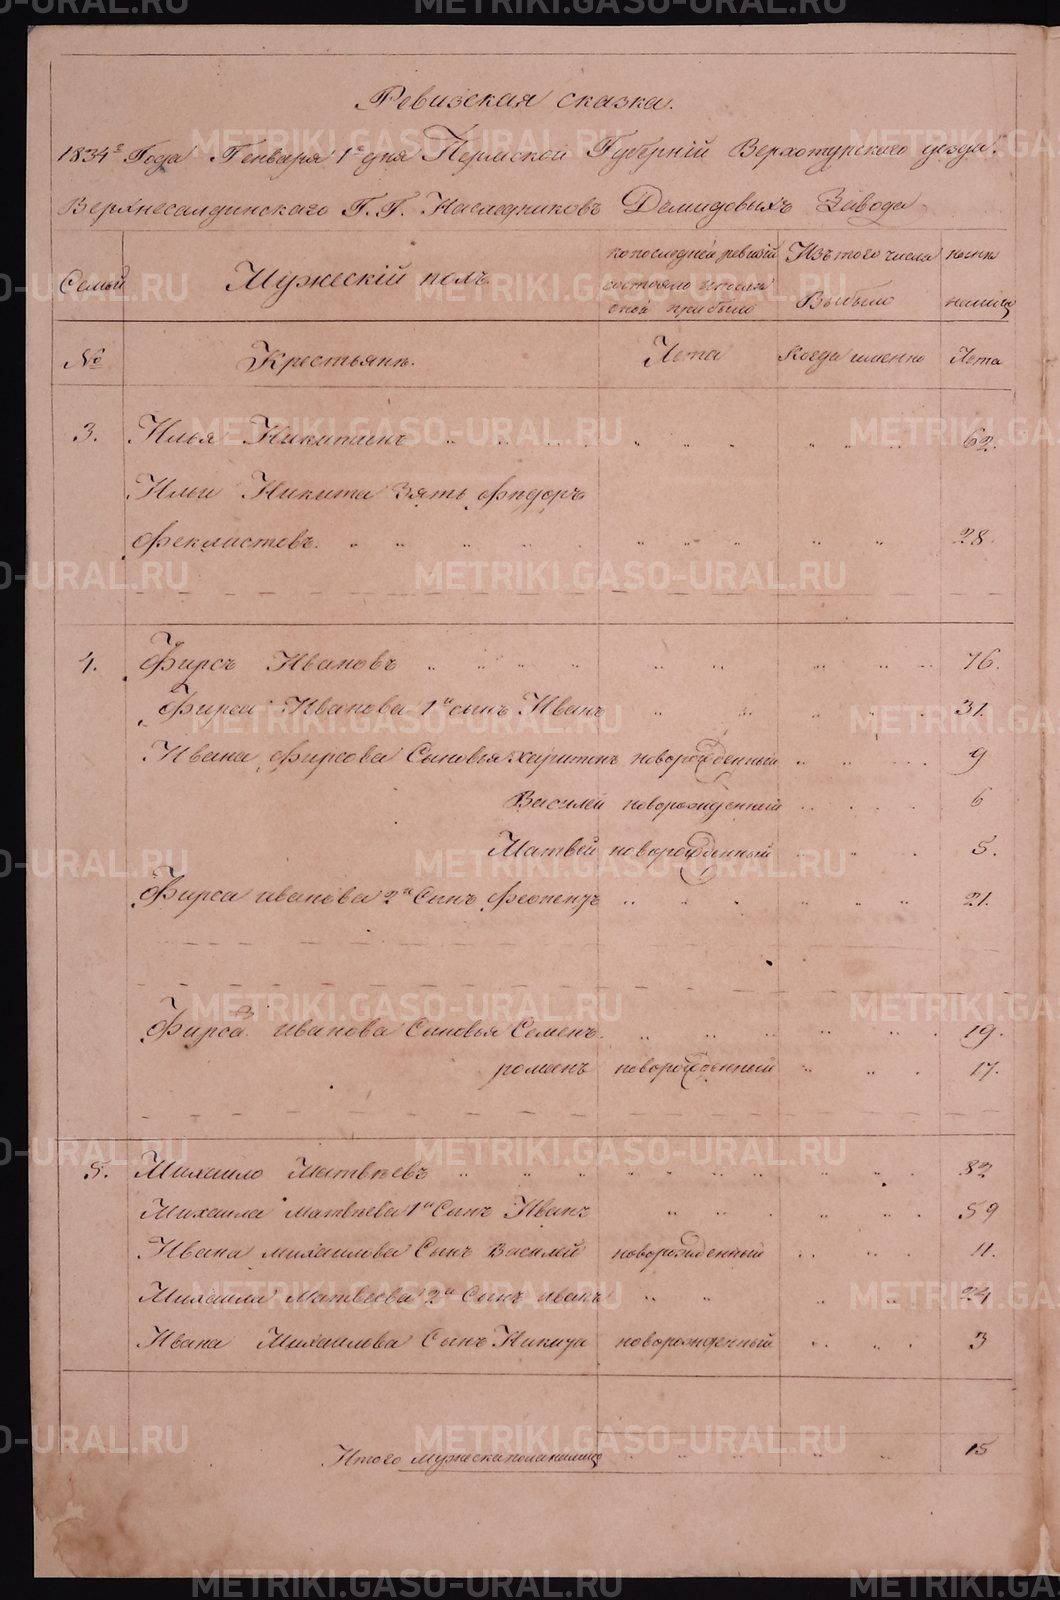 Ревизская сказка.
1834г Года Генваря 1го дня Пермской Губерніи Верхотурского уезда.
Верхнесалдинскаго Г.Г. Наследниковъ Демидовыхъ Завода
Семьи Мужескій полъ
по последней ревизіи состояло и после оной прибыло
Изъ того числа Выбыло
ныне на лицо
№ Крестьяне. Лета Когда именно Лета
3. Илья Никитинъ 62.
Ильи Никита Зять Фпдоръ
Феклистовъ. 28.
4. Фирсъ Ивановъ 76.
Фирса Иванова 1й сынъ Иванъ 31.
Ивана Фирсова Сыновья харитонъ новорожденный 9
Василей новорожденный 6
Матвей новорожденный 5.
Фирса иванова 2й Сынъ Феопентъ 21.
Фирса иванова Сыновья Семенъ 19.
романъ новорожденный 17.
5. Михаило Матвѣевъ 82
Михаила матвѣева 1й Сынъ Иванъ 59
Ивана михаилова Сынъ Василей новорожденный 11.
Михаила Матвеева 2й Сынъ иванъ 24
Ивана Михаилова Сынъ Никита новорожденный 3
Итого мужеска пола налицо 15
METRIKI.GASO-URAL.RU